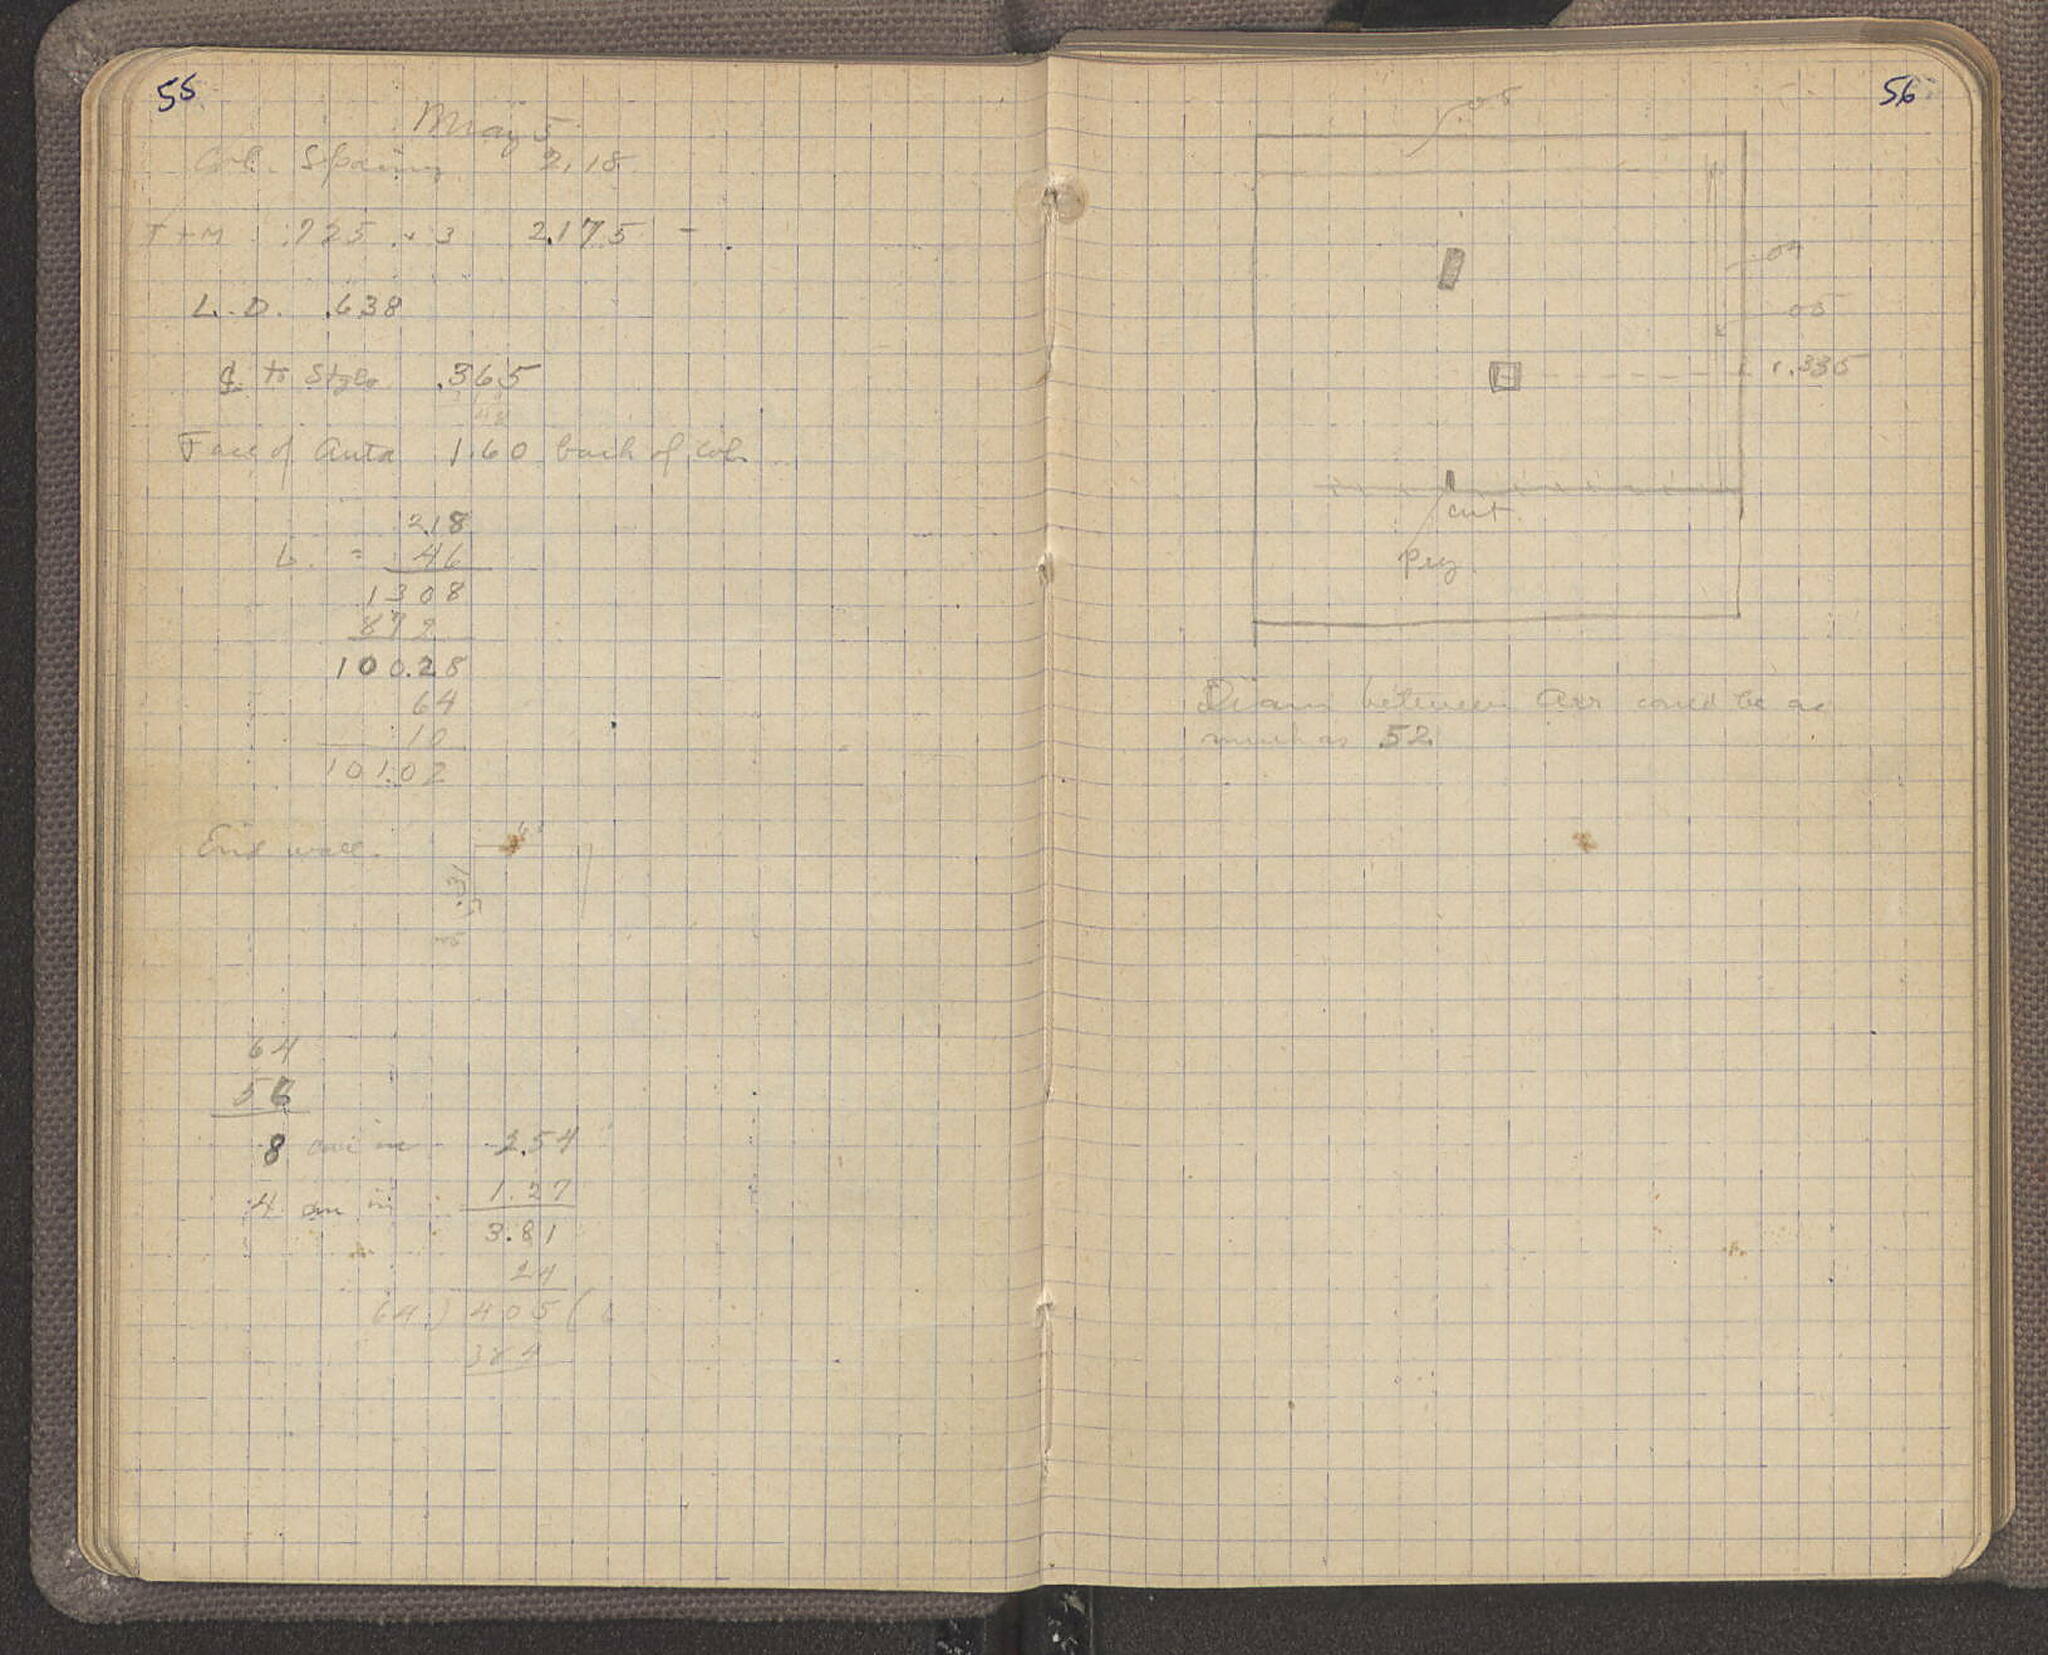 55
May 5
Col. Spacing 2.18
T + M .725 × 3 2.175 -
L.D. .638
℄ to Stylo .365
Face of Anta 1.60 back of Col.
2.18
L. = 46
1308
872
100.28
64
10
101.02
End wall.
64
56
8 cm in 2.54
4 cm in 1.27
3.81
24
64 ) 405 ( 6
384
56
.05
.04
05
1.335
cut
Pry
Diam between Arr could be as
much as 52